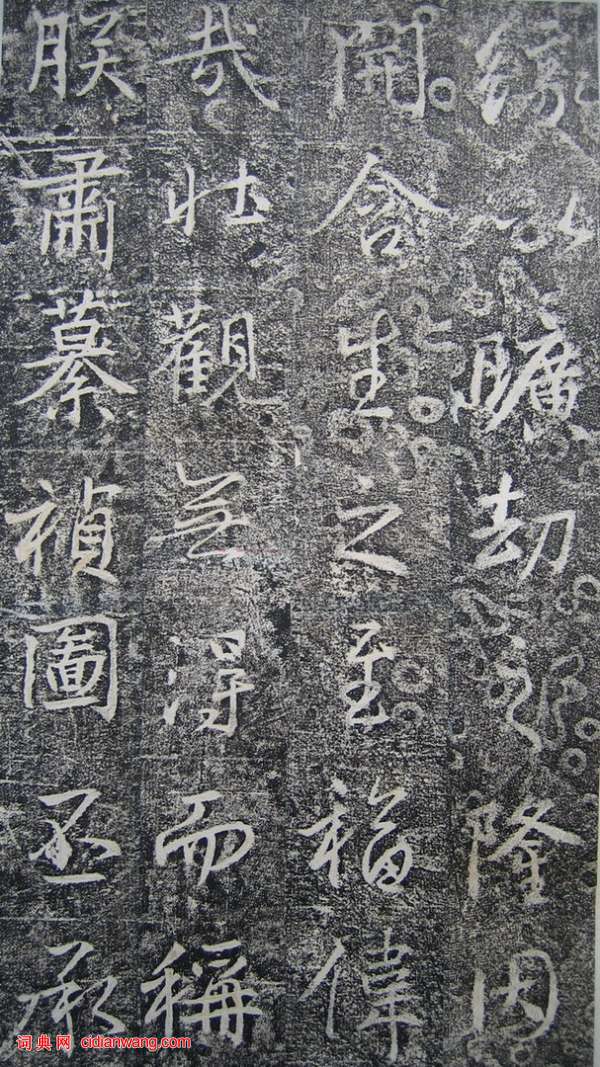 緣以曠劫之隆因
開含生之至福偉
哉壯觀无得而稱
朕肅纂禎圖丕承
词典网 cidianwang.com